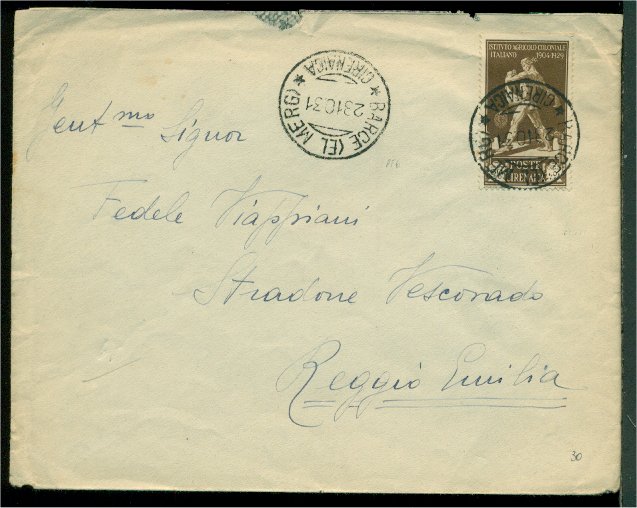 ISTITUTO AGRICOLO COLONIALE
ITALIANO 1904-1929
POSTE
CIRENAICA
BARCE (EL MERG)
CIRENAICA
23 10 31
Gent mo Signor
Fedele Viappiani
Stradone Vescovado
Reggio Emilia
30